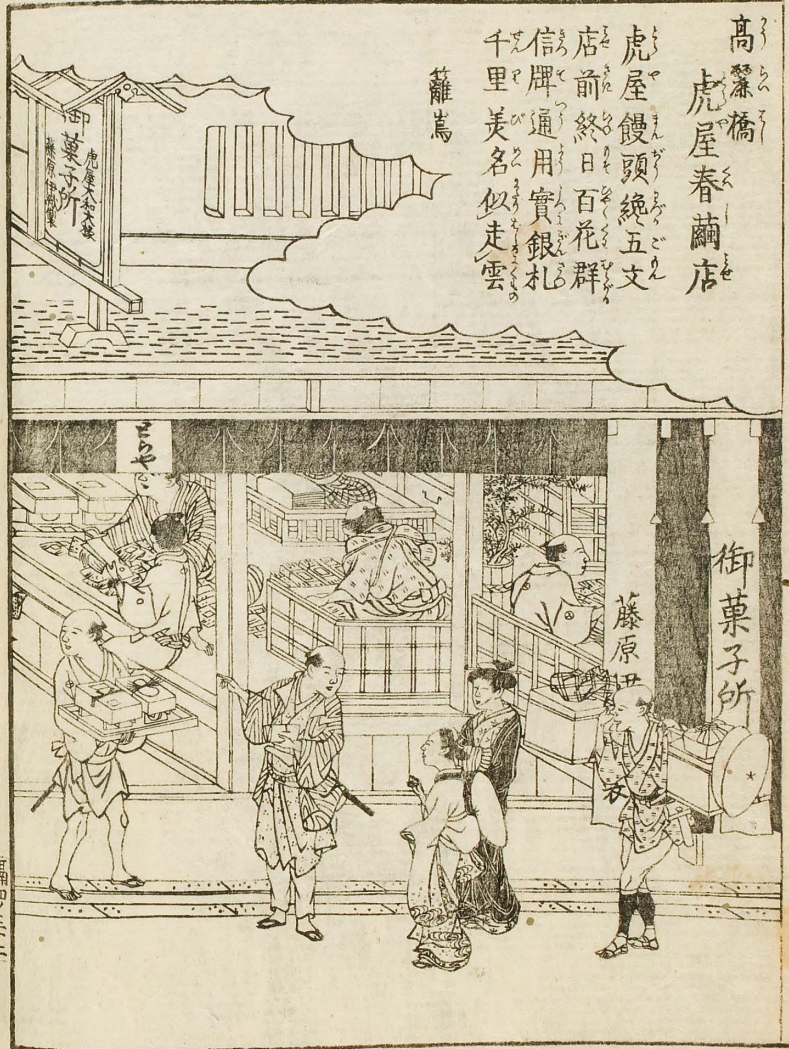 高麗橋
虎屋春繭店
虎屋饅頭纔五文
店前終日百花群
信牌通用實銀札
千里美名似走雲
籬嶌
虎屋大和大掾
御菓子所
藤原伊織製
とらや
御菓子所
藤原伊